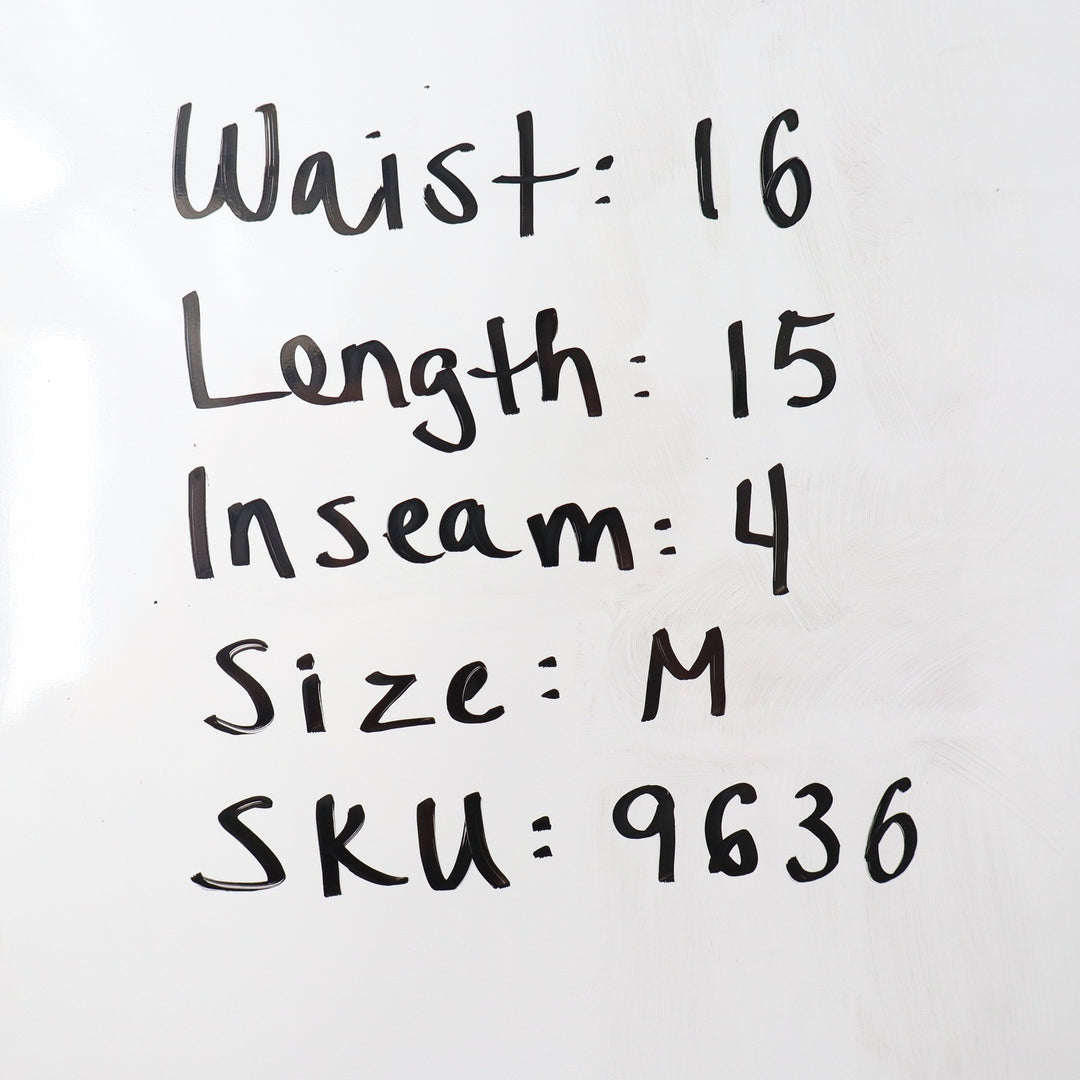 Waist: 16
Length: 15
Inseam: 4
Size: M
SKU: 9636